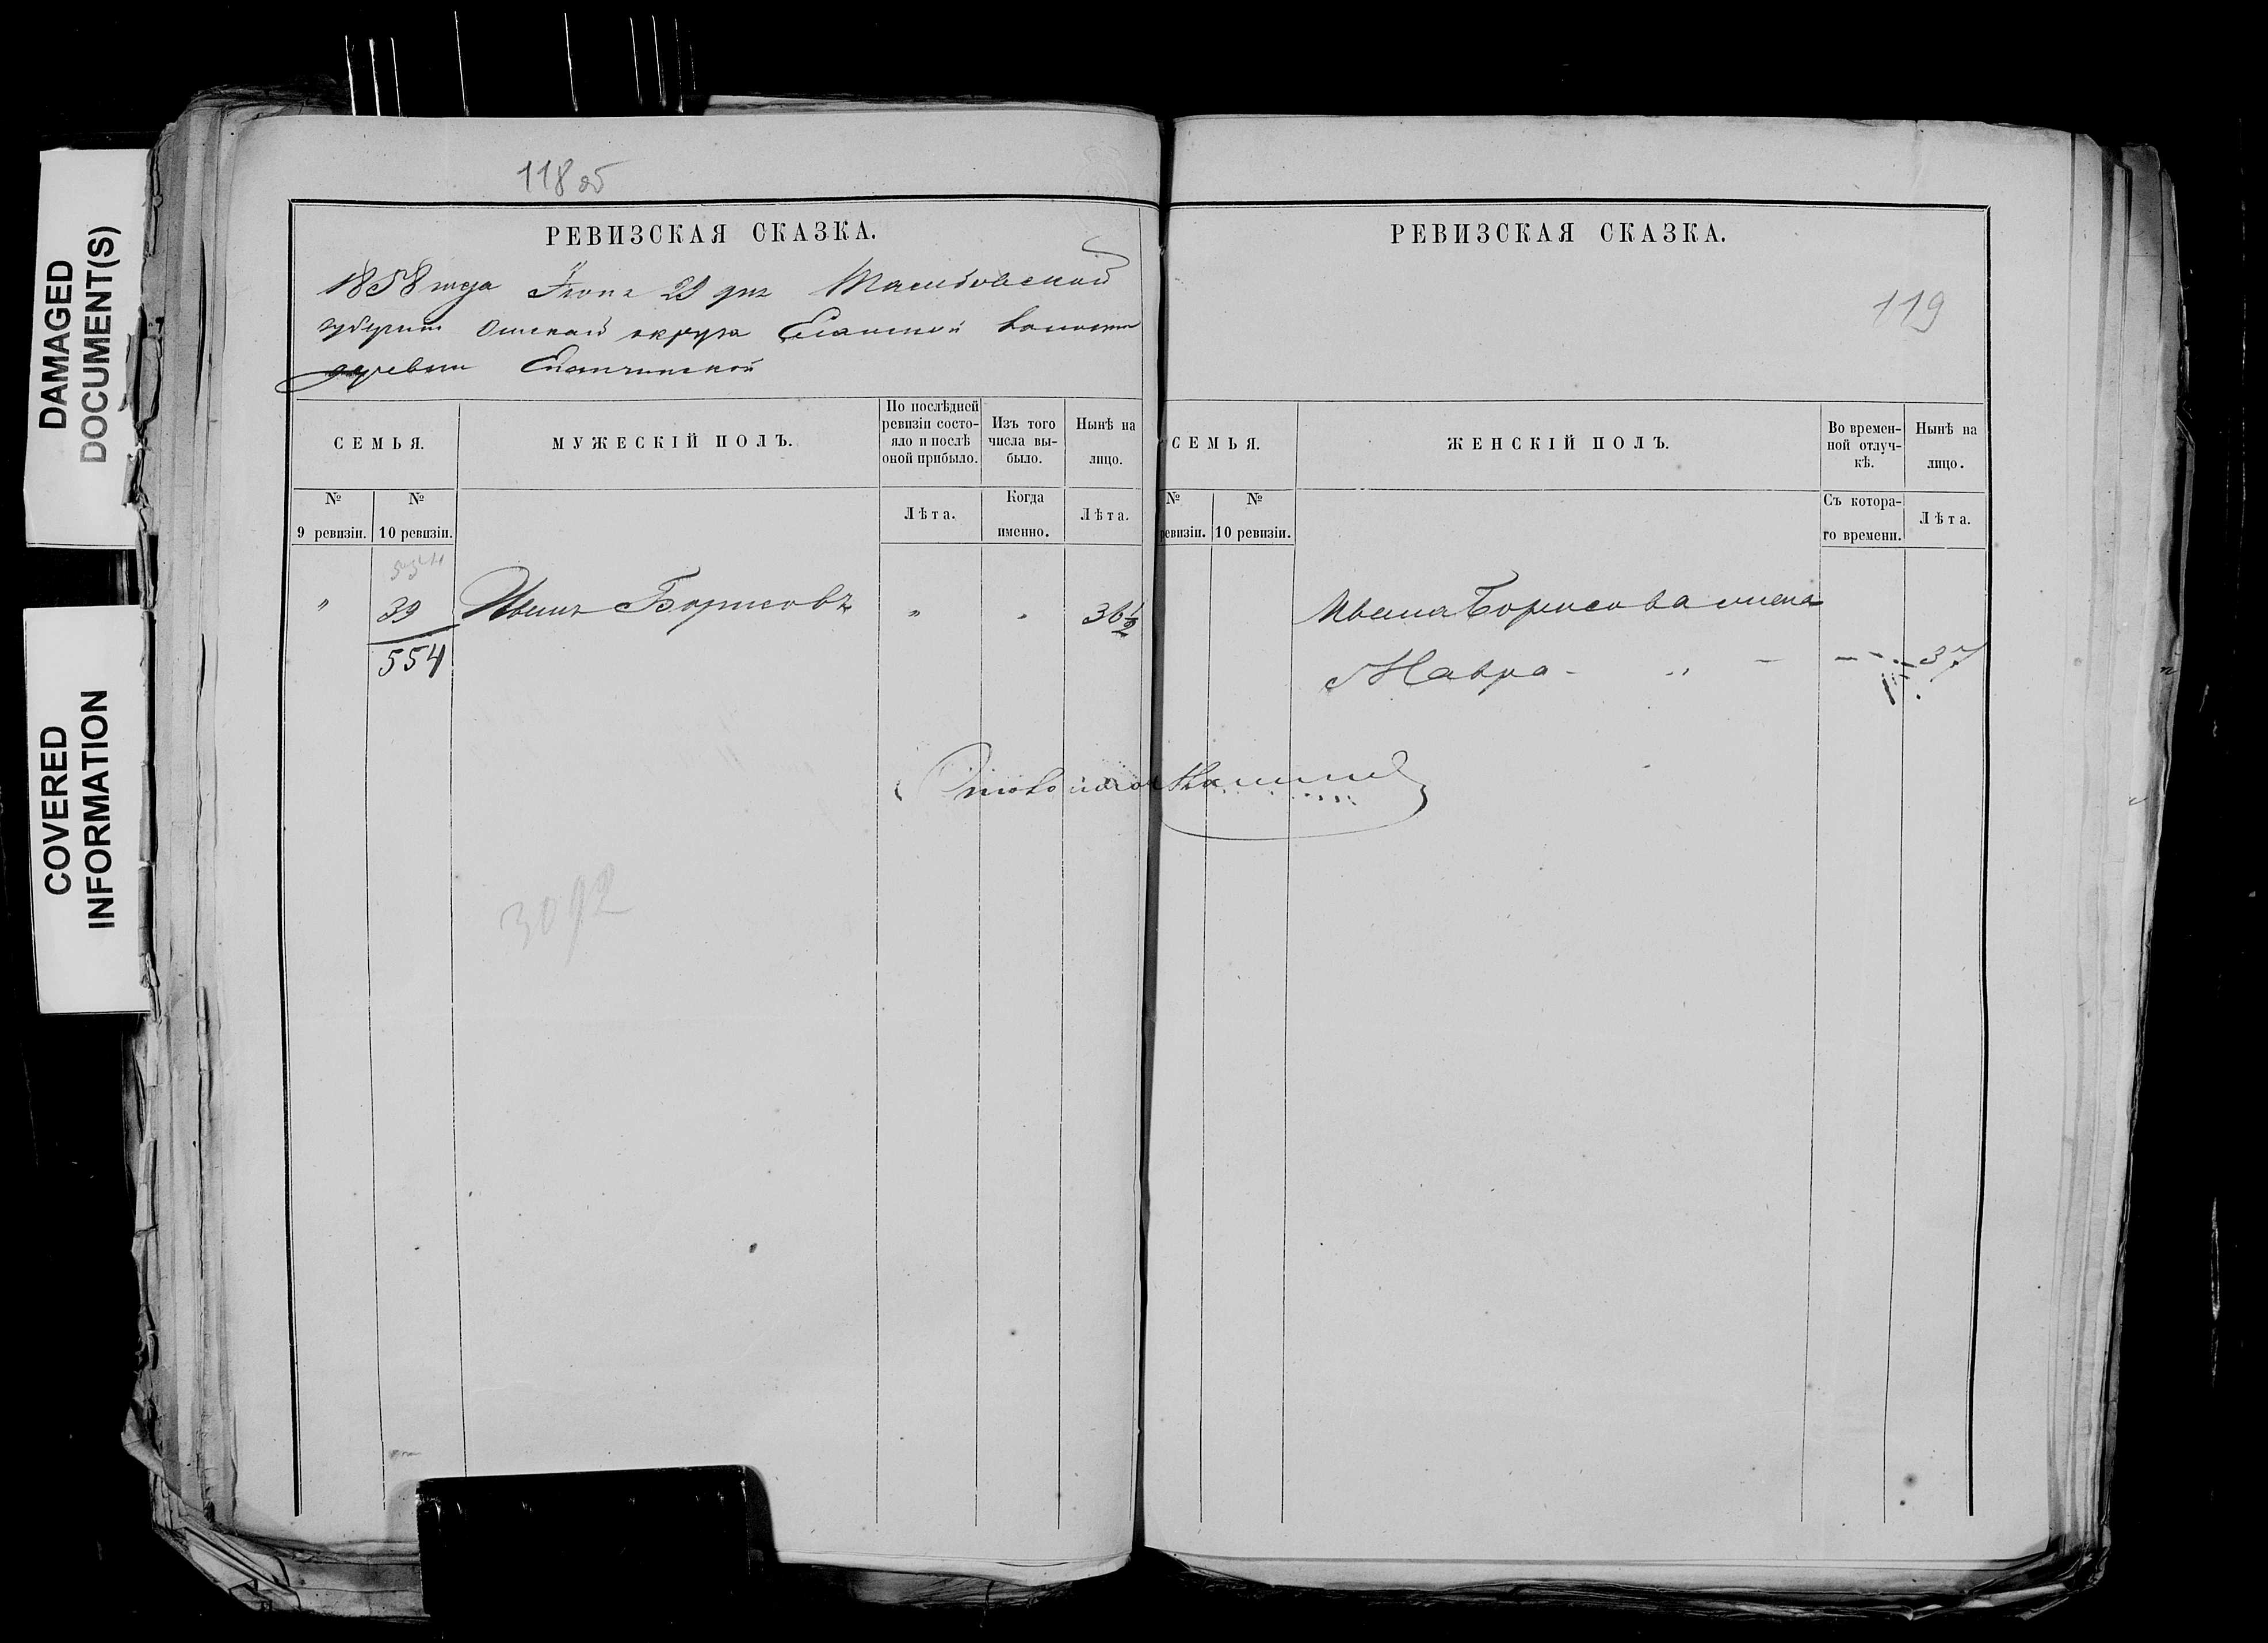 DAMAGED
DOCUMENT(S)
COVERED
INFORMATION
118 об
РЕВИЗСКАЯ СКАЗКА.
1858 года Іюня 29 дня Тобольской
губерніи Омскаго округа Еланской волости
деревни
СЕМЬЯ.
МУЖЕСКІЙ ПОЛЪ.
По послѣдней
ревизіи состо-
яло и послѣ
оной прибыло.
Изъ того
числа вы-
было.
Нынѣ на
лицо.
№
9 ревизіи.
№
10 ревизіи.
Лѣта.
Когда
именно.
Лѣта.
554
" 39 Иванъ Борисовъ " " 36½
554
3092
РЕВИЗСКАЯ СКАЗКА.
119
СЕМЬЯ.
ЖЕНСКІЙ ПОЛЪ.
Во времен-
ной отлуч-
кѣ.
Нынѣ на
лицо.
№
ревизіи.
№
10 ревизіи.
Съ котора-
го времени.
Лѣта.
Ивана Борисова жена
Мавра - " - - 37